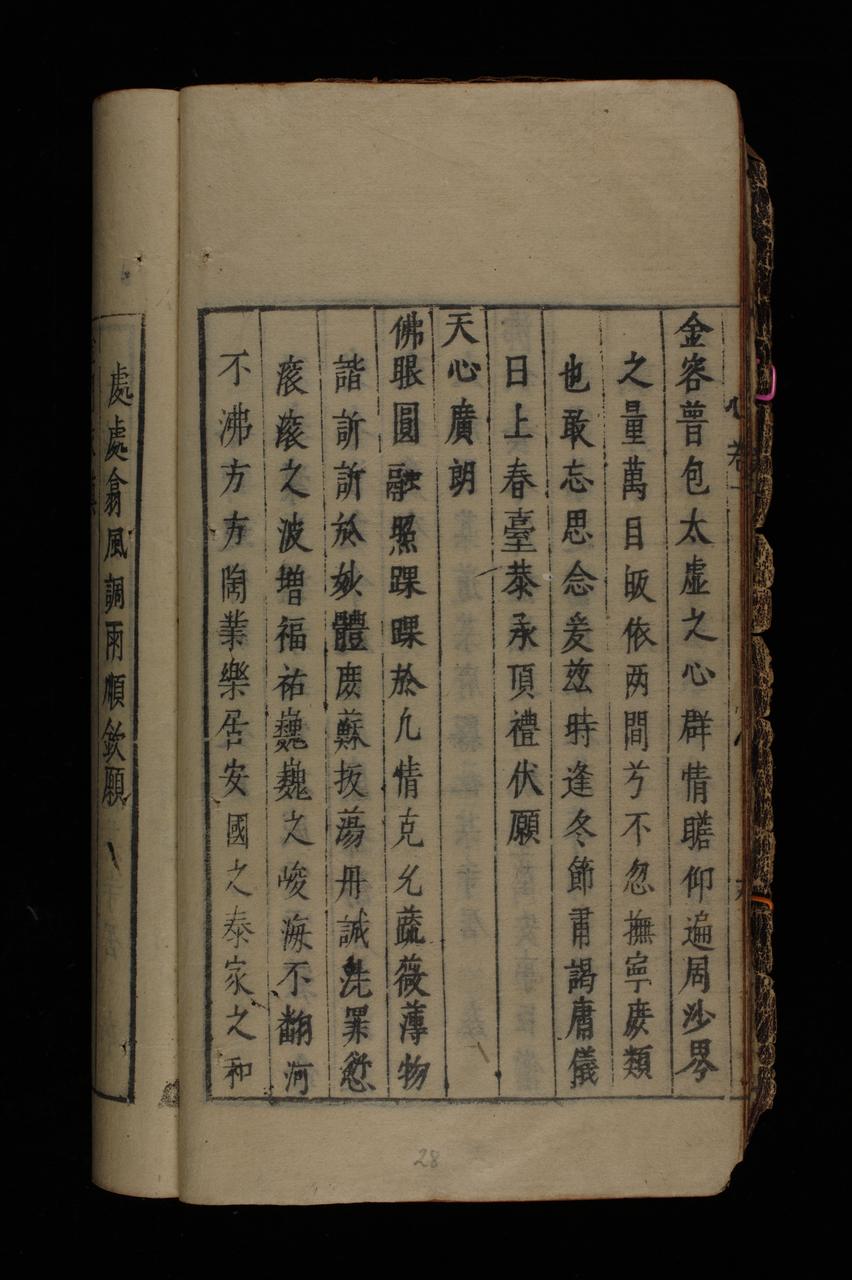 金容普包太虛之心群情瞻仰遍周沙界
之量萬目皈依两間兮不忽撫寧庶類
也敢忘思念爰茲時逢冬節肅謁庸儀
日上春臺恭承頂禮伏願
天心廣朗
佛眼圓融照踝踝於凢情克允蔬薇薄物
諧訢訢於妙體庶蘇扳蕩丹誠洗罪愆
滚滚之波增福祐巍巍之峻海不翻河
不沸方方陶業樂居安國之泰家之和
處處翕風調雨順欽願
28